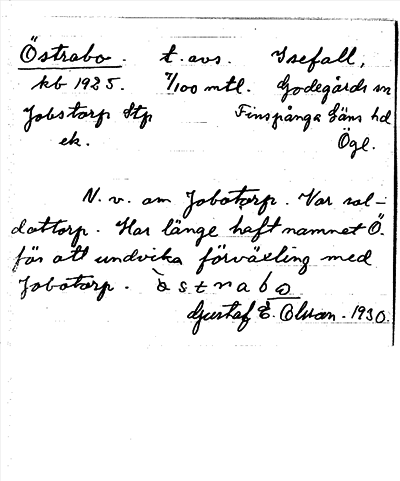 Östrabo. t. avs. Isefall,
kb 1925. 7/100 mtl. Godegårds sn
Jobstorp Stp Finspånga läns hd
ek. Ögl.
N. v. om Jobstorp. Var sol-
dattorp. Har länge haft namnet Ö.
för att undvika förväxling med
Jobstorp. östrabo
Gustaf E. Olsson. 1930.